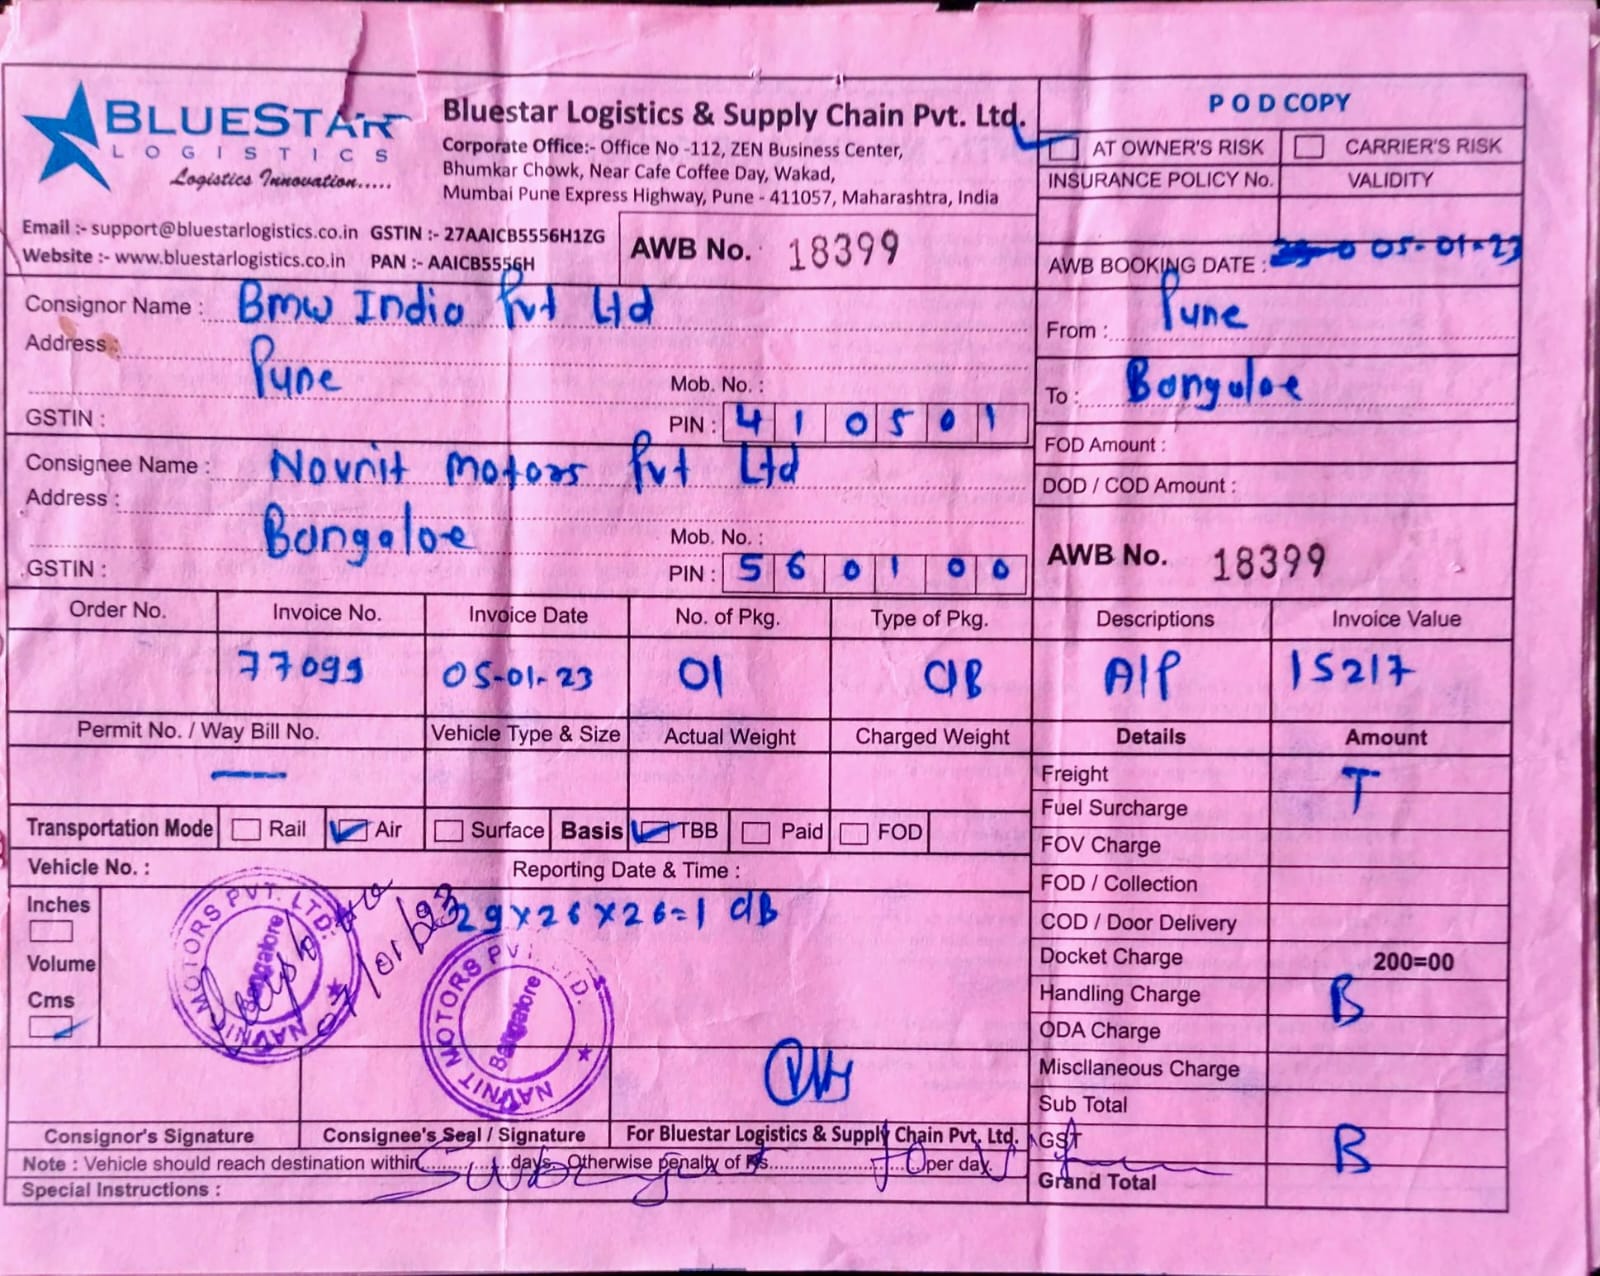 BLUESTAR
LOGISTICS
Logistics Innovation.....
Bluestar Logistics & Supply Chain Pvt. Ltd.
Corporate Office:- Office No -112, ZEN Business Center,
Bhumkar Chowk, Near Cafe Coffee Day, Wakad,
Mumbai Pune Express Highway, Pune - 411057, Maharashtra, India
Email :- support@bluestarlogistics.co.in GSTIN :- 27AAICB5556H1ZG
Website :- www.bluestarlogistics.co.in PAN :- AAICB5556H
AWB No. 18399
POD COPY
AT OWNER'S RISK CARRIER'S RISK
INSURANCE POLICY No. VALIDITY
AWB BOOKING DATE : 05-01-23
Consignor Name : Bmw India Pvt Ltd
Address : Pune
Mob. No. :
GSTIN : PIN : 410501
From : Pune
To : Bangaloe
FOD Amount :
DOD / COD Amount :
Consignee Name : Navnit Motors Pvt Ltd
Address : Bangaloe
Mob. No. :
GSTIN : PIN : 560100
AWB No. 18399
Order No. Invoice No. Invoice Date No. of Pkg. Type of Pkg. Descriptions Invoice Value
77099 05-01-23 01 CIB A/P 15217
Permit No. / Way Bill No. Vehicle Type & Size Actual Weight Charged Weight Details Amount
—
Freight T
Fuel Surcharge
Transportation Mode Rail Air Surface Basis TBB Paid FOD
FOV Charge
Vehicle No. : Reporting Date & Time :
FOD / Collection
Inches
29x26x26=1 CIB
COD / Door Delivery
Volume
Docket Charge 200=00
Cms
Handling Charge B
ODA Charge
NAVNIT MOTORS PVT. LTD.
Bangalore
07/01/2023
NAVNIT MOTORS PVT. LTD.
Bangalore
Miscllaneous Charge
Sub Total
Consignor's Signature Consignee's Seal / Signature For Bluestar Logistics & Supply Chain Pvt. Ltd. GST B
Note : Vehicle should reach destination within..........days. Otherwise penalty of Rs......................per day.
Grand Total
Special Instructions :